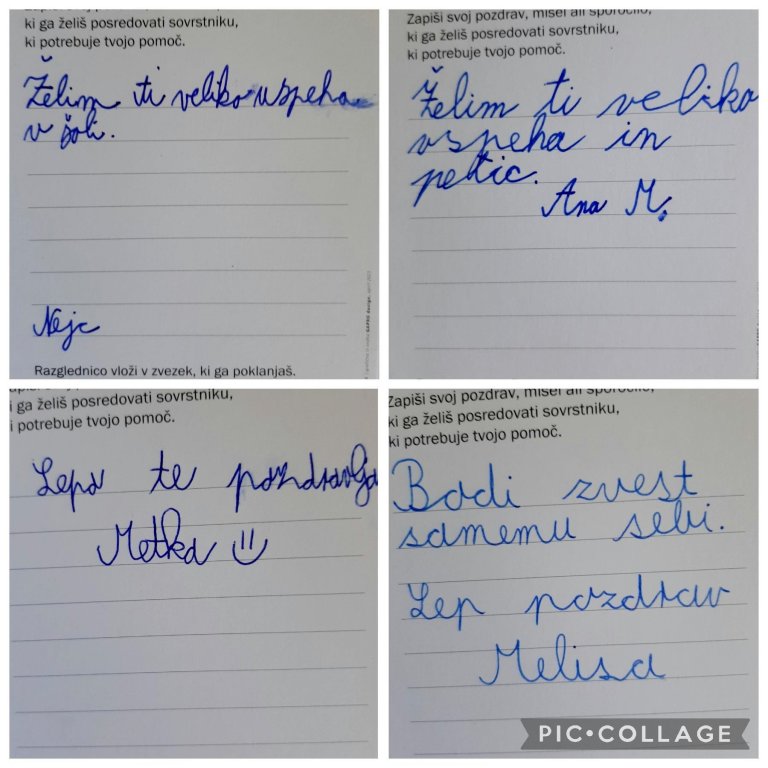 ki ga želiš posredovati sovrstniku,
ki potrebuje tvojo pomoč.
Želim ti veliko uspeha
v šoli.
Nejc
Razglednico vloži v zvezek, ki ga poklanjaš.
Zapiši svoj pozdrav, misel ali sporočilo,
ki ga želiš posredovati sovrstniku,
ki potrebuje tvojo pomoč.
Želim ti veliko
uspeha in
petic.
Ana M.
i ga želiš posredovati sovrstniku,
i potrebuje tvojo pomoč.
Lepo te pozdravlja
Metka
Zapiši svoj pozdrav, misel ali sporočilo,
ki ga želiš posredovati sovrstniku,
ki potrebuje tvojo pomoč.
Bodi zvest
samemu sebi.
Lep pozdrav
Melisa
PIC•COLLAGE